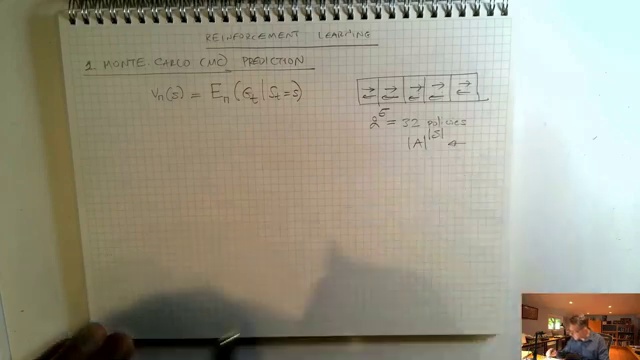 REINFORCEMENT LEARNING
1 MONTE-CARLO (MC) PREDICTION
Vπ(s) = Eπ(Gt | St = s)
2^5 = 32 policies
|A|^|S| ←